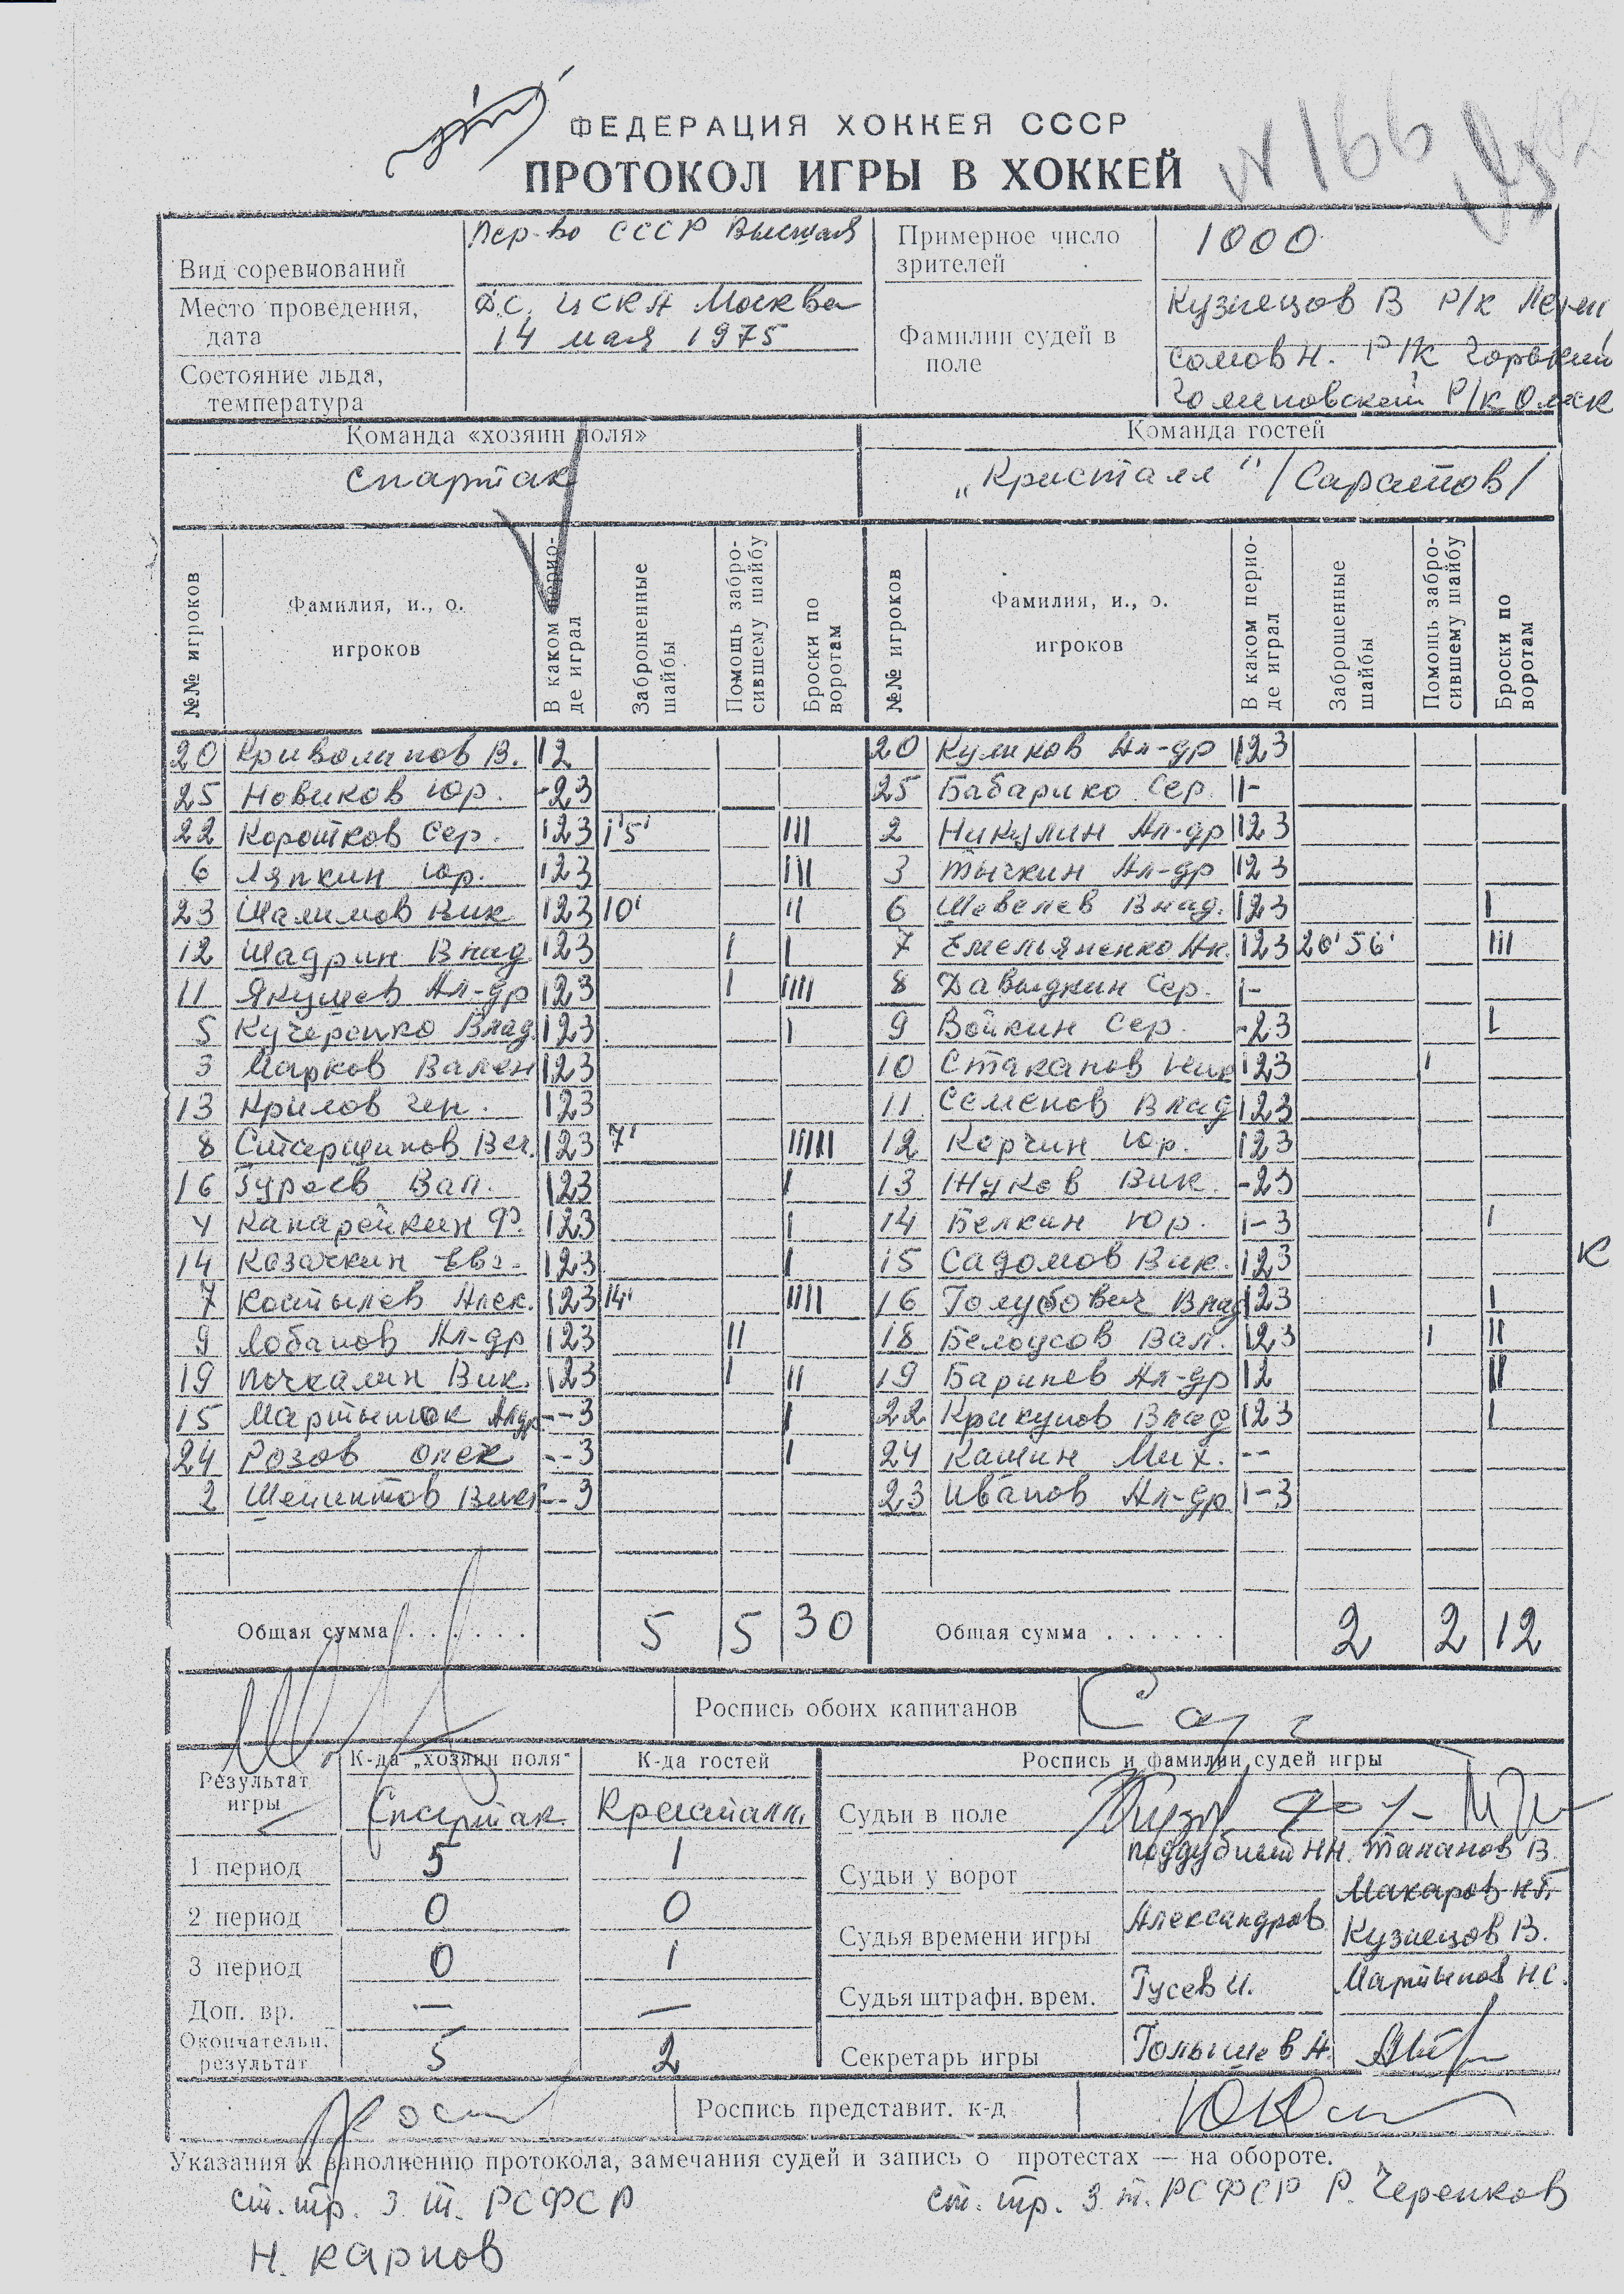 ФЕДЕРАЦИЯ ХОККЕЯ СССР
ПРОТОКОЛ ИГРЫ В ХОККЕЙ
N 166
Вид соревнований Пер-во СССР Высшая Примерное число зрителей 1000
Место проведения, дата Д.С. ЦСКА Москва 14 мая 1975
Состояние льда, температура
Фамилии судей в поле Кузнецов В Р/к
Сомов Н. Р/К Горький
Р/К Омск
Команда «хозяин поля» Команда гостей
Спартак „Кристалл" /Саратов/
№№ игроков Фамилия, и., о. игроков В каком периоде играл Заброшенные шайбы Помощь забросившему шайбу Броски по воротам №№ игроков Фамилия, и., о. игроков В каком периоде играл Заброшенные шайбы Помощь забросившему шайбу Броски по воротам
20 Криволапов В. 12 20 Куликов Ал-др 123
25 Новиков Юр. -23 25 Бабарико Сер. 1-
22 Коротков Сер. 123 1'5' III 2 Никулин Ал-др 123
6 Ляпкин Юр. 123 III 3 Тычкин Ал-др 123
23 Шалимов Вик 123 10' II 6 Шевелев Влад. 123 I
12 Шадрин Влад 123 I I 7 Емельяненко Ан. 123 20' 56' III
11 Якушев Ал-др 123 I IIII 8 Давыдкин Сер. 1-
5 Кучеренко Влад 123 I 9 Войкин Сер. -23 I
3 Марков Вален 123 10 Стаканов Ник 123 I
13 Крылов Ген. 123 11 Семенов Влад 123
8 Старшинов Вяч. 123 7' IIIIII 12 Корчин Юр. 123
16 Гуреев Вал. 123 I 13 Жуков Вик. -23
4 Канарейкин Ф. 123 I 14 Белкин Юр. 1-3 I
14 Казачкин Евг. 123 I 15 Садомов Вик. 123 К
7 Костылев Алек. 123 14' IIII 16 Голубович Влад 123 I
9 Лобанов Ал-др 123 II 18 Белоусов Вал. 123 I II
19 Пачкалин Вик. 123 I II 19 Баринев Ал-др 12 II
15 Мартынюк --3 I 22 Крикунов Влад 123 I
24 Розов Олек --3 I 24 Кашин Мих. --
2 --3 23 Иванов Ал-др 1-3
Общая сумма . . . . . . 5 5 30 Общая сумма . . . . . . 2 2 12
Роспись обоих капитанов
Результат игры К-да „хозяин поля" К-да гостей Роспись и фамилии судей игры
Спартак Кристалл Судьи в поле
1 период 5 1 Судьи у ворот Поддубный Н.Н. Таканов В.
Макаров Н.Г.
2 период 0 0 Судья времени игры Александров Кузнецов В.
3 период 0 1 Судья штрафн. врем. Гусев И. Мартынов Н.С.
Доп. вр. — —
Окончательн. результат 5 2 Секретарь игры Голышев А.
Роспись представит. к-д
Указания к заполнению протокола, замечания судей и запись о протестах — на обороте.
ст. тр. З. т. РСФСР ст. тр. З. т. РСФСР Р. Черенков
Н. Карпов